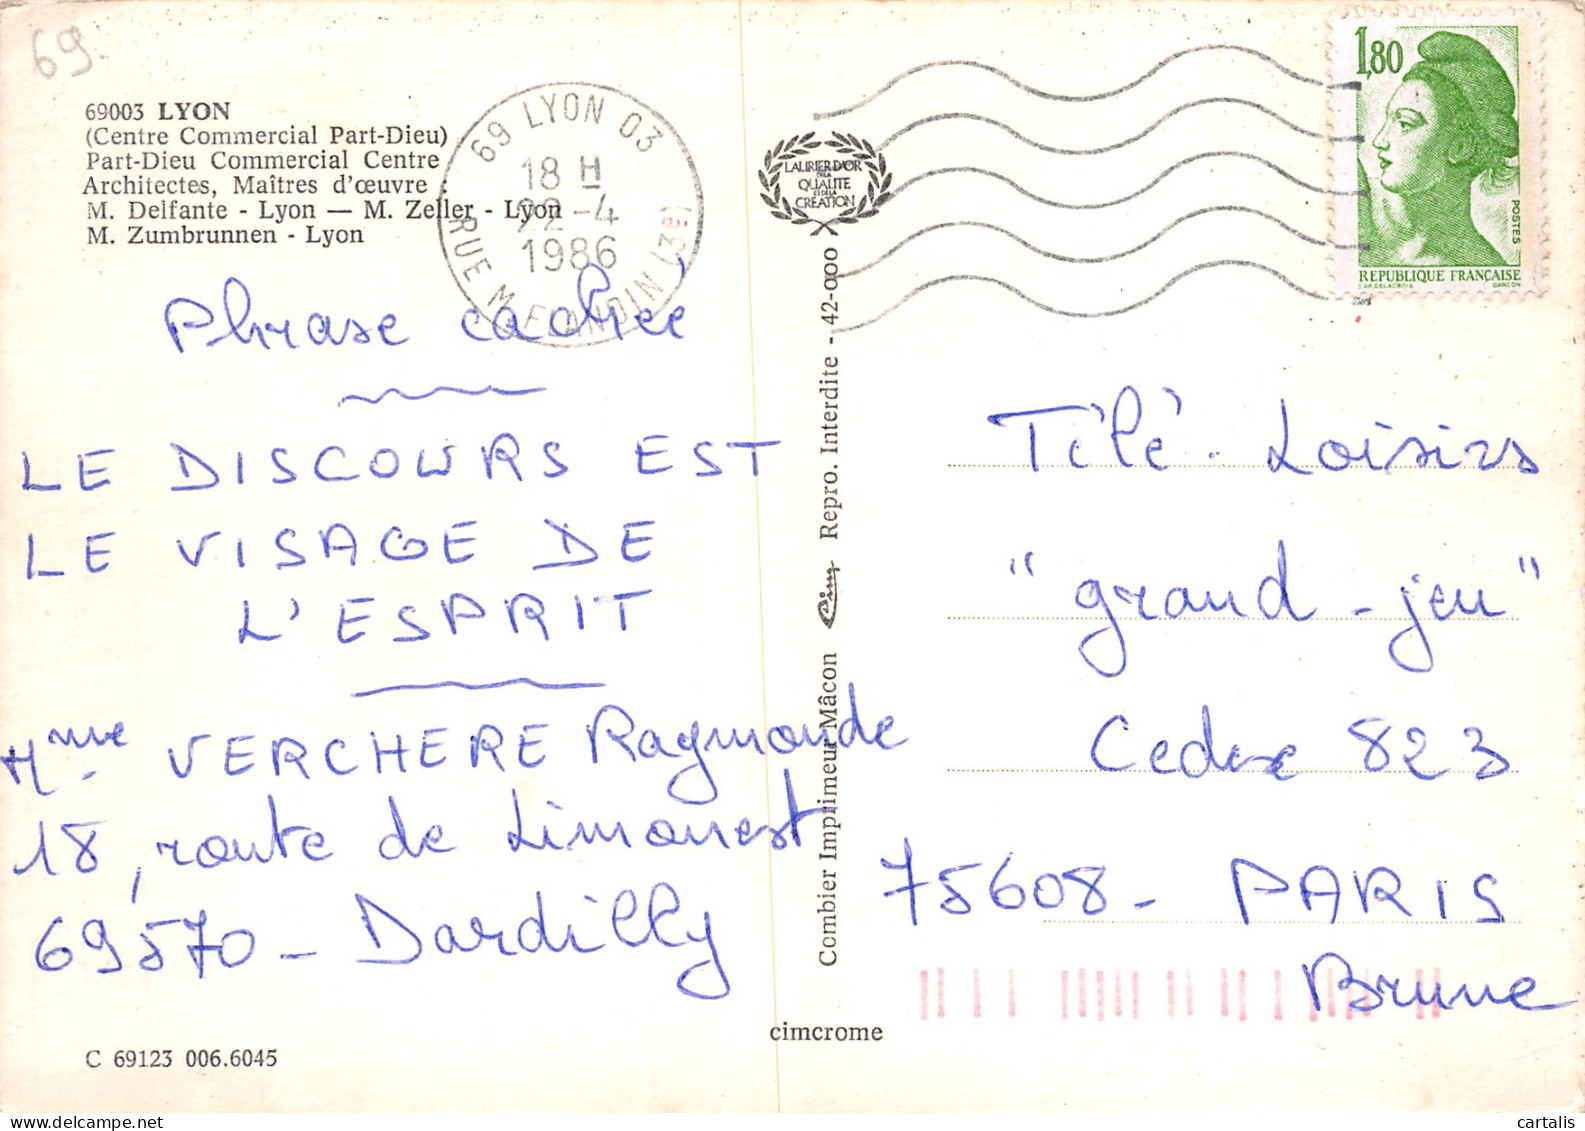 69
69003 LYON
(Centre Commercial Part-Dieu)
Part-Dieu Commercial Centre
Architectes, Maîtres d'œuvre :
M. Delfante - Lyon — M. Zeller - Lyon
M. Zumbrunnen - Lyon
69 LYON 03
18 H
22-4
1986
RUE M. FLANDIN (3e)
Phrase cachée
LE DISCOURS EST
LE VISAGE DE
L'ESPRIT
Mme VERCHERE Raymonde
18, route de Limonest
69570 - Dardilly
C 69123 006.6045
LAURIER D'OR
DE LA
QUALITE
ET DE LA
CREATION
Combier Imprimeur Mâcon Cim Repro. Interdite - 42-000
cimcrome
1,80
POSTES
REPUBLIQUE FRANÇAISE
D'AP. DELACROIX GANDON
Télé-Loisirs
"grand-jeu"
Cedex 823
75608 - PARIS
Brune
cartalis